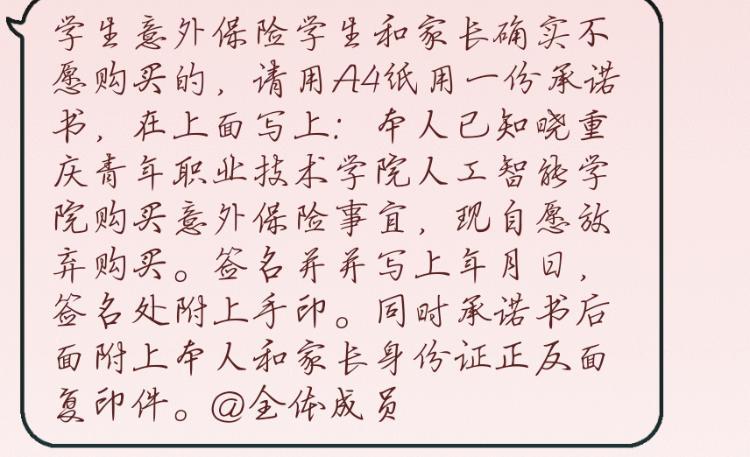 学生意外保险学生和家长确实不
愿购买的，请用A4纸用一份承诺
书，在上面写上：本人已知晓重
庆青年职业技术学院人工智能学
院购买意外保险事宜，现自愿放
弃购买。签名并并写上年月日，
签名处附上手印。同时承诺书后
面附上本人和家长身份证正反面
复印件。@全体成员